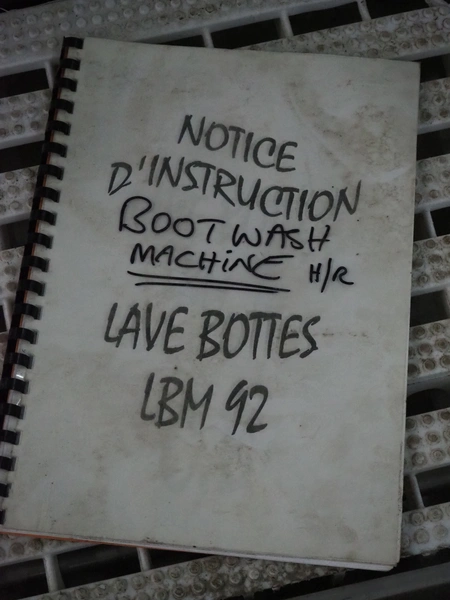 NOTICE
D'INSTRUCTION
BOOT WASH
MACHINE H/R
LAVE BOTTES
LBM 92